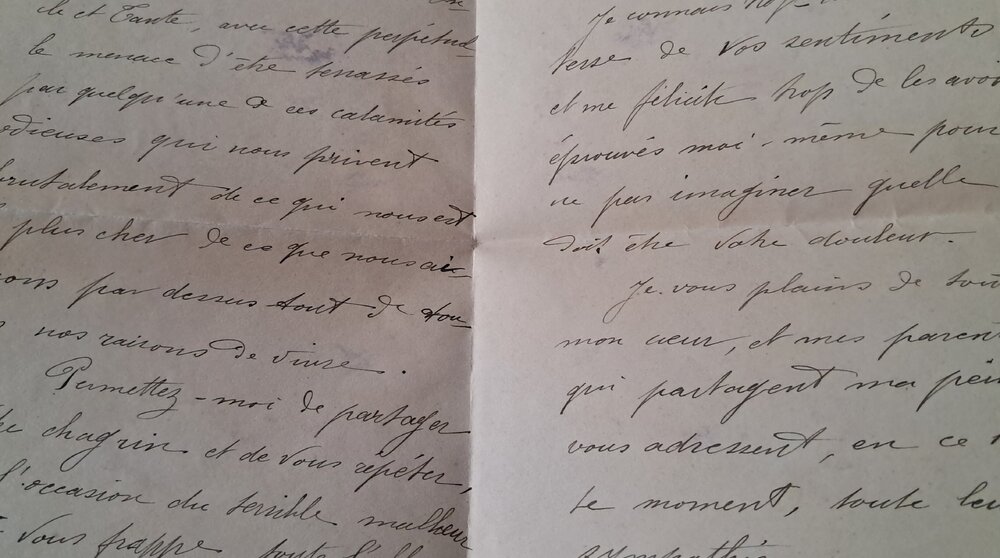 le et Tante, avec cette perpétuel
le menace d'être terrassés
par quelqu'une de ces calamités
odieuses qui nous privent
brutalement de ce qui nous est
plus cher de ce que nous ai-
ons par dessus tout de tou-
nos raisons de vivre.
Permettez-moi de partager
chagrin et de vous répéter,
l'occasion du terrible malheur
vous frappe toute
Je connais trop
tesse de vos sentiments
et me félicite trop de les avoi
éprouvés moi-même pour
ne pas imaginer quelle
doit être votre douleur.
Je vous plains de tou
mon cœur, et mes paren
qui partagent ma pei
vous adressent, en ce
te moment, toute leu
sympathie